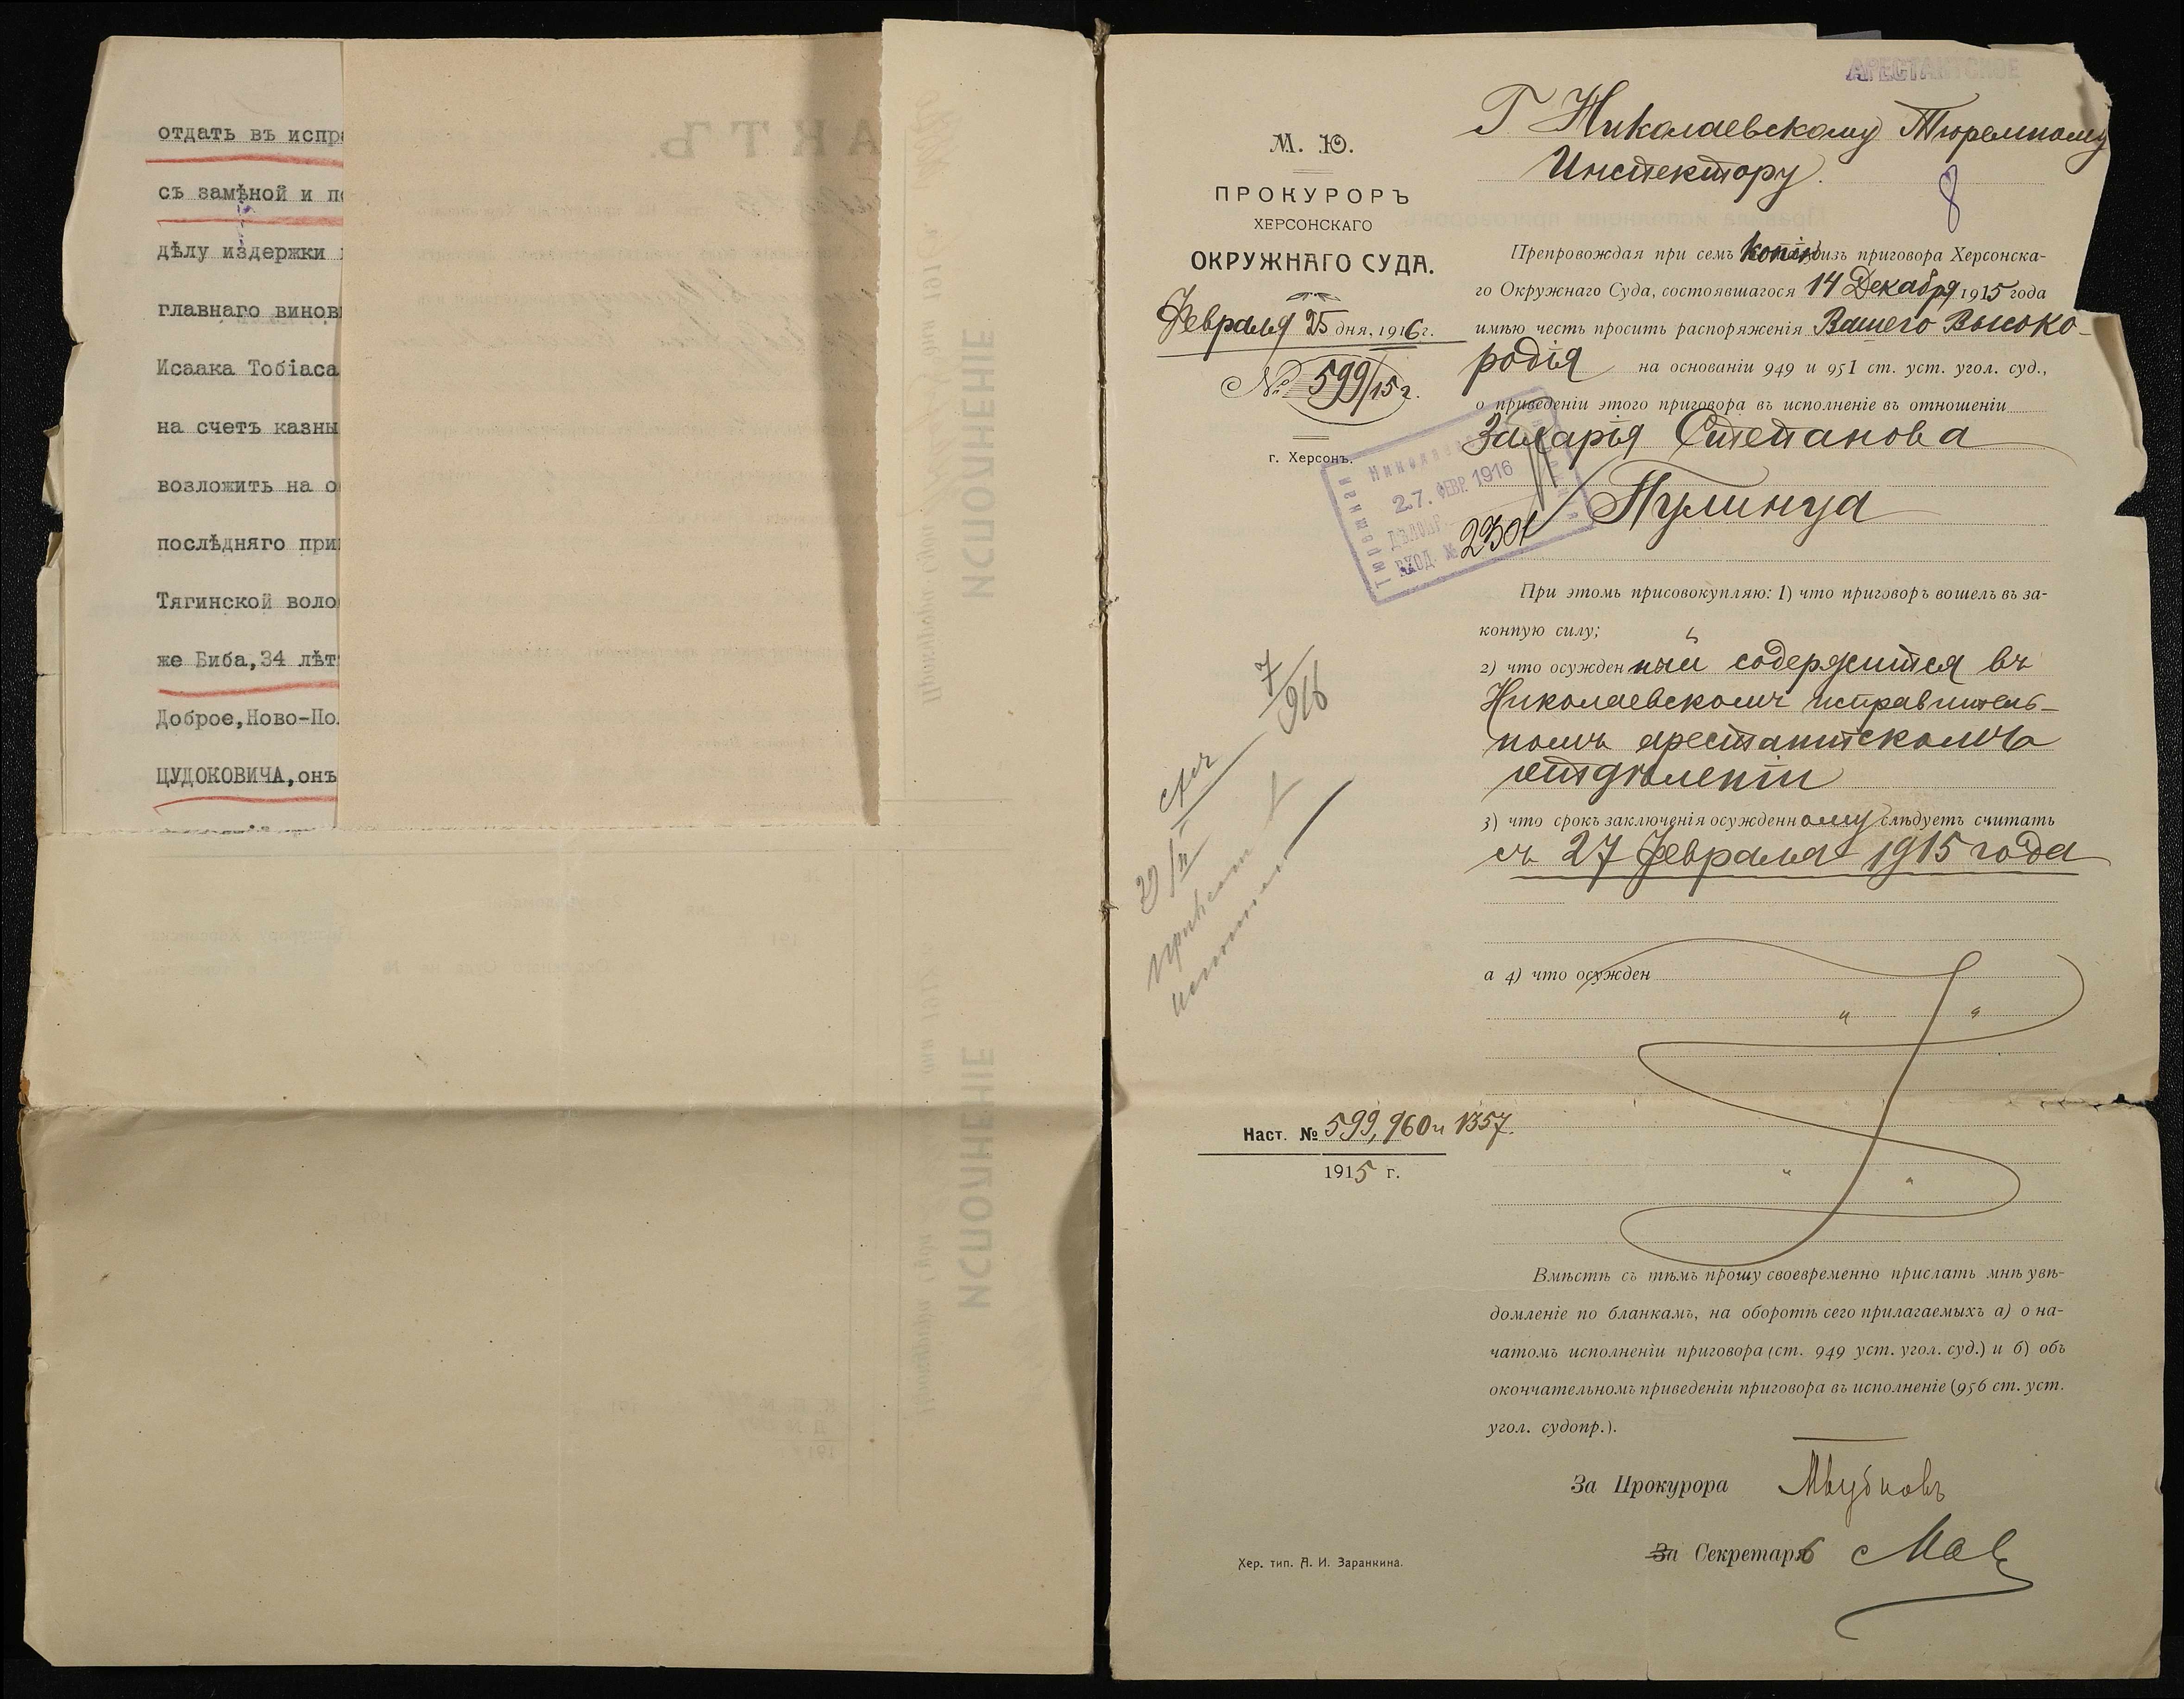 отдать въ испр
съ замѣной и по
дѣлу издержки
главнаго винов
Исаака Тобіаса
на счетъ казны
возложить на о
послѣдняго при
Тягинской воло
же Биба,34 лѣт
Доброе,Ново-По
ЦУДОКОВИЧА,онъ
АРЕСТАНТСКОЕ
Г Николаевскому Тюремному
Инспектору.
8
М. Ю.
ПРОКУРОРЪ
ХЕРСОНСКАГО
ОКРУЖНАГО СУДА.
Февраля 25 дня, 1916 г.
№ 599/15 г.
г. Херсонъ.
Препровождая при семъ копію изъ приговора Херсонска-
го Окружнаго Суда, состоявшагося 14 Декабря 1915 года
имѣю честь просить распоряженія Вашего Высоко-
родія на основаніи 949 и 951 ст. уст. угол. суд.,
о приведеніи этого приговора въ исполненіе въ отношеніи
Захарія Степанова
Пулинца
Тюремная Николаев
27. ФЕВР. 1916
ВХОД. № 2301
При этомъ присовокупляю: 1) что приговоръ вошелъ въ за-
конную силу;
2) что осужденный содержится въ
Николаевскомъ исправитель-
номъ арестантскомъ
отдѣленіи
3) что срокъ заключенія осужденному слѣдуетъ считать
съ 27 Февраля 1915 года
а 4) что осужден
7/916
Наст. № 599, 960 и 1357.
1915 г.
Вмѣстѣ съ тѣмъ прошу своевременно прислать мнѣ увѣ-
домленіе по бланкамъ, на оборотѣ сего прилагаемыхъ а) о на-
чатомъ исполненіи приговора (ст. 949 уст. угол. суд.) и б) объ
окончательномъ приведеніи приговора въ исполненіе (956 ст. уст.
угол. судопр.).
За Прокурора
За Секретарь
Хер. тип. А. И. Заранкина.